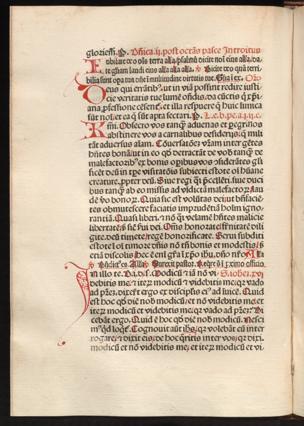 gloriessi. P. Dñica ij. post octãs pasce Introitus
Iubilate deo ois terra alla. psalmũ dicite noi eius alla. da
te gliam laudi eius alla alla alla. Dicite deo quã terri
bilia sunt opa tua dñe in multitudine virtutis tue. Gloria. Oro
Deus qui errãtibus ut in viã possint redire iusti
cie veritatis tue lumẽ oñdis. da cũctis q xpi
ana pfessione cẽsent. et illa respuere q huic inimica
sũt noi. et ea q̃ sũt apta sectari. P. L. e. b. pe. a. ij. c.
Kmi. Obsecro vos tanq̃ aduenas et pegrinos
abstinere vos a carnalibus desiderijs. q̃ mili
tãt aduersus aiam. Cõuersatiõẽs vram inter gẽtes
hñtes bonã: ut in eo qd detractãt de vob tanq̃ de
malefactorib. ex bonis opibus vos cõsiderãtes gli
ficẽt deũ in die visitatiõis subiecti estote oi hũane
creature. ppter deũ. Siue regi q̃si pcellẽti. siue duci
bus tanq̃ ab eo missis ad vindictã malefactoꝝ. lau
dẽ vo bonoꝝ. Quia sic est voluntas dei. ut bñfaciẽ
tes obmutescere faciatis imprudẽtiũ hoim ignor
antiã. Quasi liberi. et nõ q̃si velamẽ hñtes malicie
libertatẽ. sꝫ sic fui dei. Oẽs honorate. fraternitatẽ dili
gite. deũ timete. regẽ honorificate. Serui subditi
estote i oi timore dñis nõ tm bonis et modestis. sꝫ
etiã discolis hec ẽ eni grã i xpo ihu. dño nro.
In illo te. Da. d. s. Modicũ et iã nõ vi. S. Iohẽs. xvj.
debitis me. et iteꝝ modicũ et videbitis me. qꝫ vado
ad prẽz. dixerũt ergo ex discipulis eius ad inuicẽ. Quid
est hoc qd dicit nob modicũ. et nõ videbitis me. et
iteꝝ modicũ et videbitis me. qꝫ vado ad prẽz. Di
cebãt ergo. Quid ẽ hoc qd dicit nob modicũ. nesci
mus qd loqtur. Cognouit aũt ihs. qꝫ volebãt eũ inter
rogare. et dixit eis. de hoc q̃ritis inter vos. qꝫ dixi.
modicũ et nõ videbitis me. et iteꝝ modicũ et vi